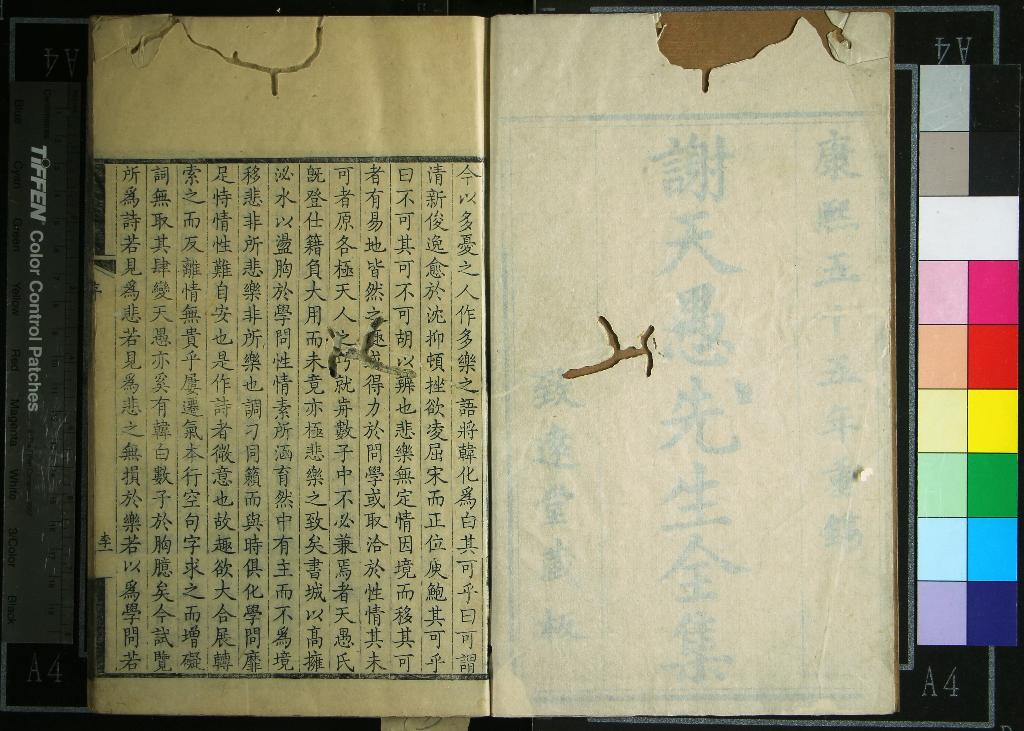 康熙五十五年重鐫
謝天愚先生全集
致遠堂藏板
今以多憂之人作多樂之語將韓化爲白其可乎曰可謂
清新俊逸愈於沈抑頓挫欲凌屈宋而正位庾鮑其可乎
曰不可其可不可胡以辨也悲樂無定情因境而移其可
者有易地皆然之或得力於問學或取洽於性情其未
可者原各極天人之巧就數子中不必兼焉者天愚氏
旣登仕籍負大用而未竟亦極悲樂之致矣書城以高擁
泌水以盪胸於學問性情素所涵育然中有主而不爲境
移悲非所悲樂非所樂也調刁同籟而與時俱化學問靡
足恃情性難自安也是作詩者微意也故趣欲大合展轉
索之而反離情無貴乎屢遷氣本行空句字求之而增礙
詞無取其肆變天愚亦奚有韓白數子於胸臆矣今試覽
所爲詩若見爲悲若見爲悲之無損於樂若以爲學問若
序
TIFFEN Color Control Patches
Blue
Cyan
Green
Yellow
Red
Magenta
White
3/Color
Black
A4
A4
A4
A4